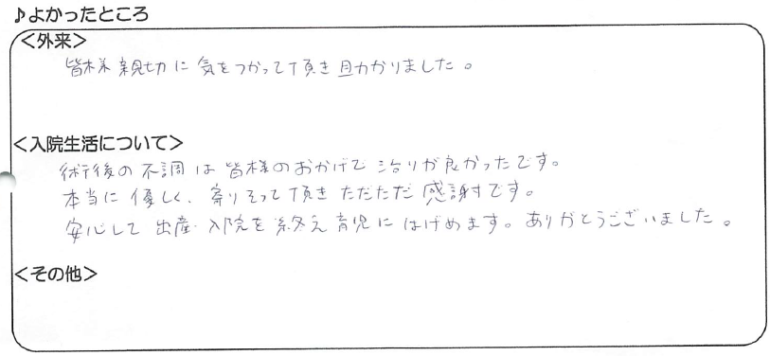 ♪よかったところ
＜外来＞
皆様親切に気をつかって頂き助かりました。
＜入院生活について＞
術後の不調は皆様のおかげで治りが良かったです。
本当に優しく、寄りそって頂きただただ感謝です。
安心して出産・入院を終え育児にはげめます。ありがとうございました。
＜その他＞